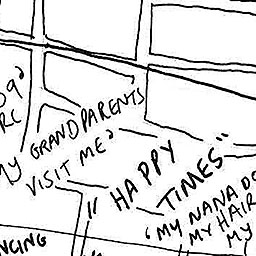 MY GRANDPARENTS
VISIT ME'
"HAPPY
TIMES"
'MY NANA DO
MY HAIR
MY
NCING